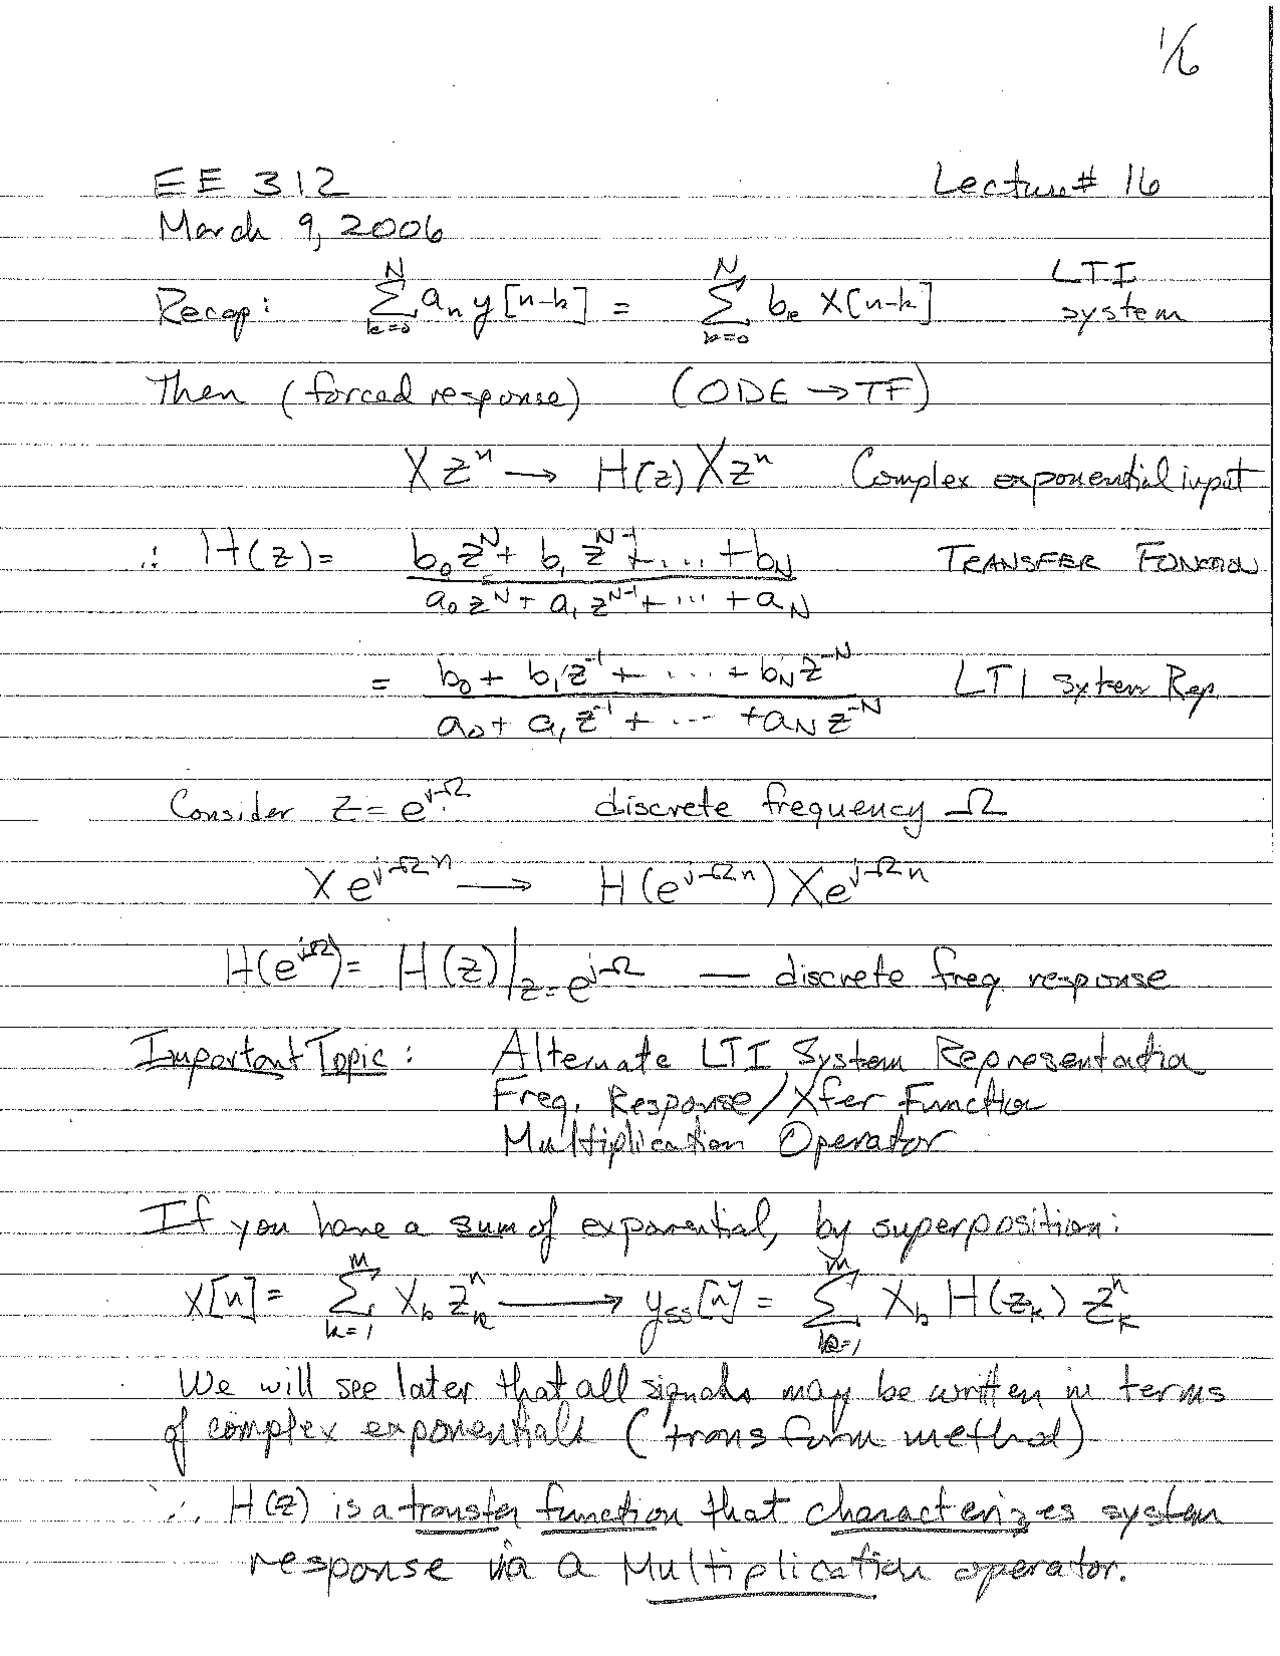 1/6
EE 312 Lecture # 16
March 9, 2006
Recap: \sum_{k=0}^{N} a_n y[n-k] = \sum_{k=0}^{N} b_k x[n-k] LTI system
Then (forced response) (ODE → TF)
X z^n → H(z) X z^n Complex exponential input
∴ H(z) = \frac{b_0 z^N + b_1 z^{N-1} + ... + b_N}{a_0 z^N + a_1 z^{N-1} + ... + a_N} TRANSFER FUNCTION
= \frac{b_0 + b_1 z^{-1} + ... + b_N z^{-N}}{a_0 + a_1 z^{-1} + ... + a_N z^{-N}} LTI System Rep.
Consider z = e^{jΩ} discrete frequency Ω
X e^{jΩn} → H(e^{jΩn}) X e^{jΩn}
H(e^{jΩ}) = H(z)|_{z=e^{jΩ}} — discrete freq. response
Important Topic: Alternate LTI System Representation
Freq. Response/Xfer Function
Multiplication Operator
If you have a sum of exponential, by superposition:
x[n] = \sum_{k=1}^{m} X_k z_k^n → y_{ss}[n] = \sum_{k=1}^{m} X_k H(z_k) z_k^n
We will see later that all signals may be written in terms
of complex exponentials (transform method)
∴ H(z) is a transfer function that characterizes system
response via a Multiplication operator.